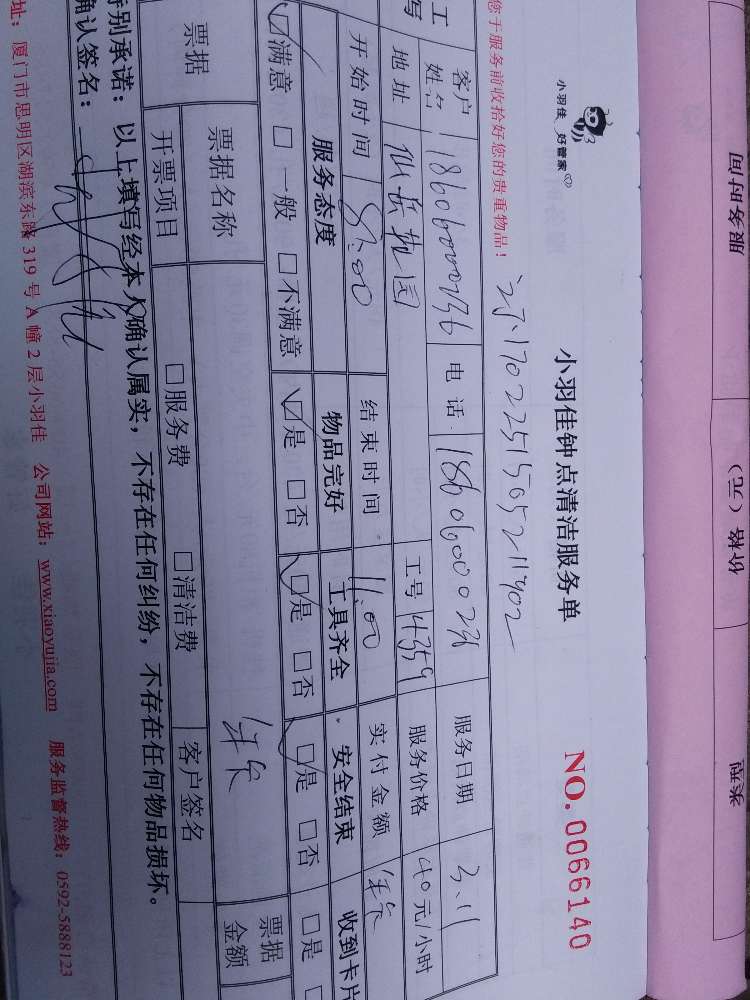 服务时间
价格（元）
小羽佳 好管家
小羽佳钟点清洁服务单
NO. 0066140
您于服务前收拾好您的贵重物品！
工
写
客户姓名
电话
18606000236
服务日期
3.11
地址
仙岳花园
工号
4359
服务价格
40元/小时
开始时间
8:00
结束时间
11:00
实付金额
年卡
服务态度
物品完好
工具齐全
安全结束
收到卡片
☑满意 □一般 □不满意
☑是 □否
☑是 □否
☑是 □否
□是
票据
票据名称
年卡
票据金额
开票项目
□服务费
□清洁费
客户签名
特别承诺：以上填写经本人确认属实，不存在任何纠纷，不存在任何物品损坏。
确认签名：
址：厦门市思明区湖滨东路319号A幢2层小羽佳 公司网站：www.xiaoyujia.com 服务监督热线：0592-5888123